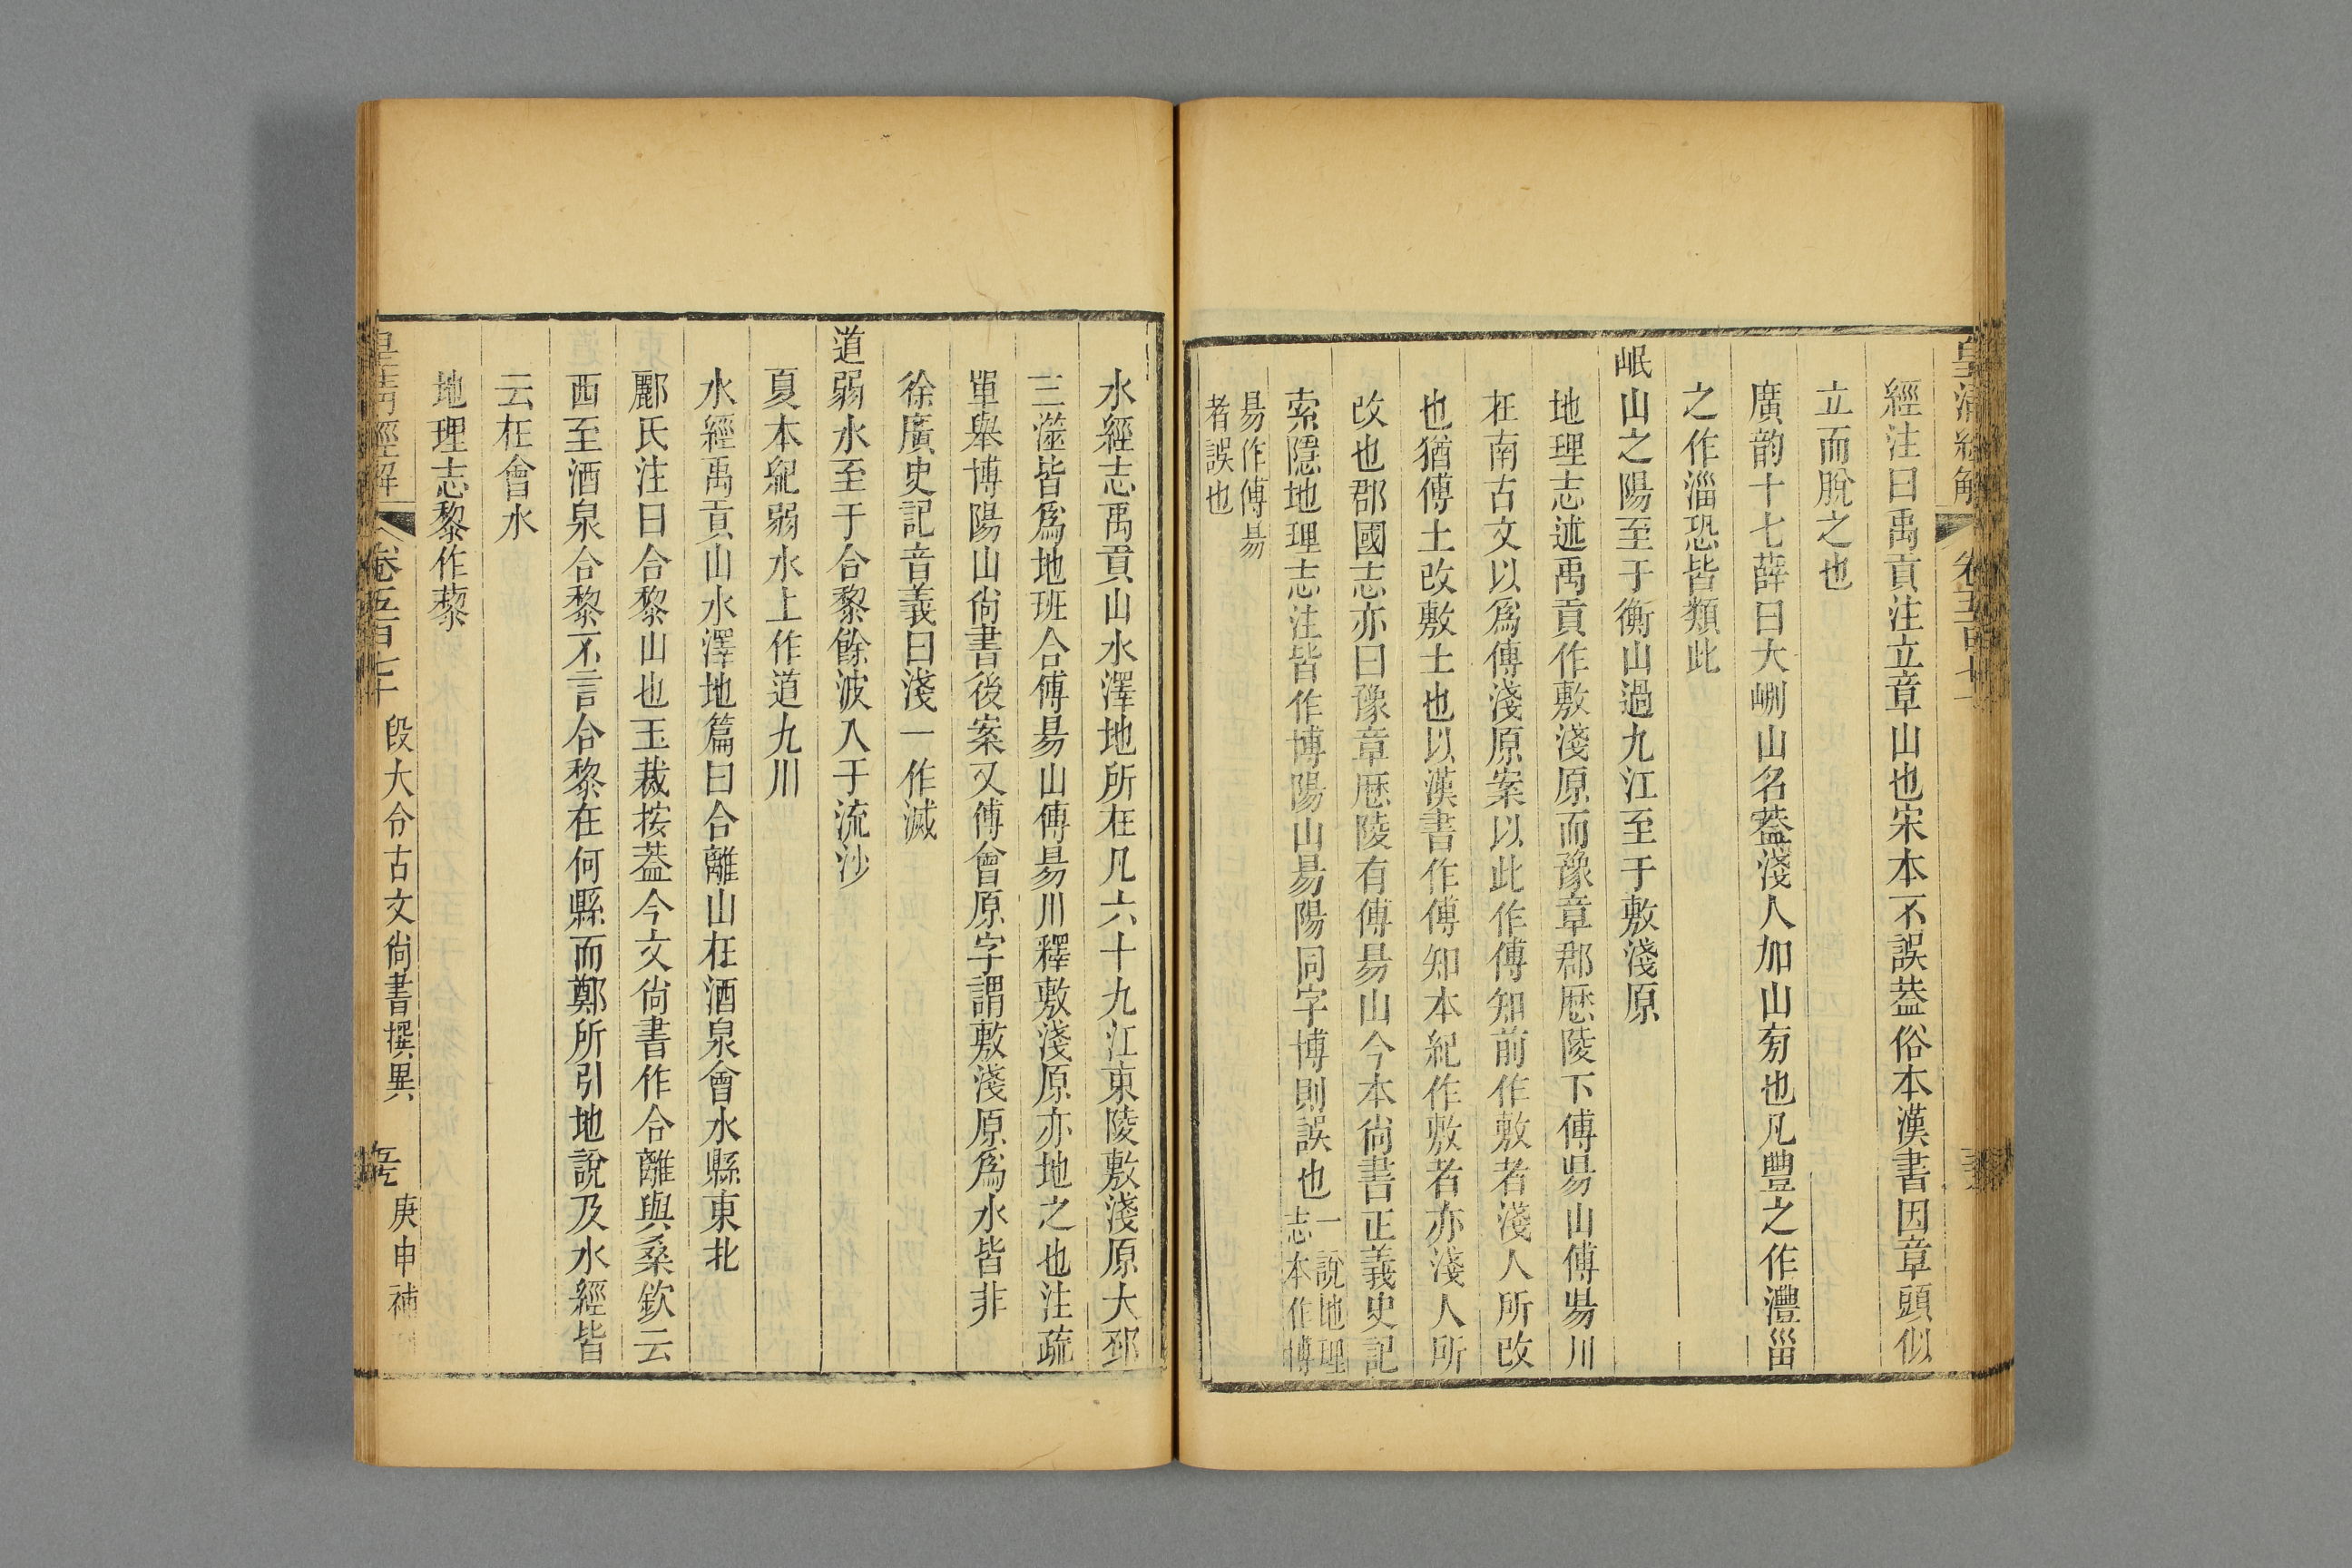 皇清經解 卷五百七十
經注曰禹貢注立章山也宋本不誤葢俗本漢書因章頭似
立而脫之也
廣韵十七薛曰大峢山名葢淺人加山㫄也凡豐之作灃甾
之作淄恐皆類此
岷山之陽至于衡山過九江至于敷淺原
地理志述禹貢作敷淺原而豫章郡歷陵下傅昜山傅昜川
在南古文以爲傅淺原案以此作傅知前作敷者淺人所改
也猶傅土改敷土也以漢書作傅知本紀作敷者亦淺人所
改也郡國志亦曰豫章歷陵有傅昜山今本尙書正義史記
索隱地理志注皆作博陽山昜陽同字博則誤也一說地理
志本作博
昜作傅昜
者誤也
水經志禹貢山水澤地所在凡六十九江東陵敷淺原大邳
三澨皆爲地班合傅昜山傅昜川釋敷淺原亦地之也注疏
單舉博陽山尙書後案又傅會原字謂敷淺原爲水皆非
徐廣史記音義曰淺一作滅
道弱水至于合黎餘波入于流沙
夏本紀弱水上作道九川
水經禹貢山水澤地篇曰合離山在酒泉會水縣東北
酈氏注曰合黎山也玉裁按葢今文尙書作合離與桑欽云
西至酒泉合黎不言合黎在何縣而鄭所引地說及水經皆
云在會水
地理志黎作藜
皇清經解 卷五百七十 段大令古文尙書撰異 庚申補